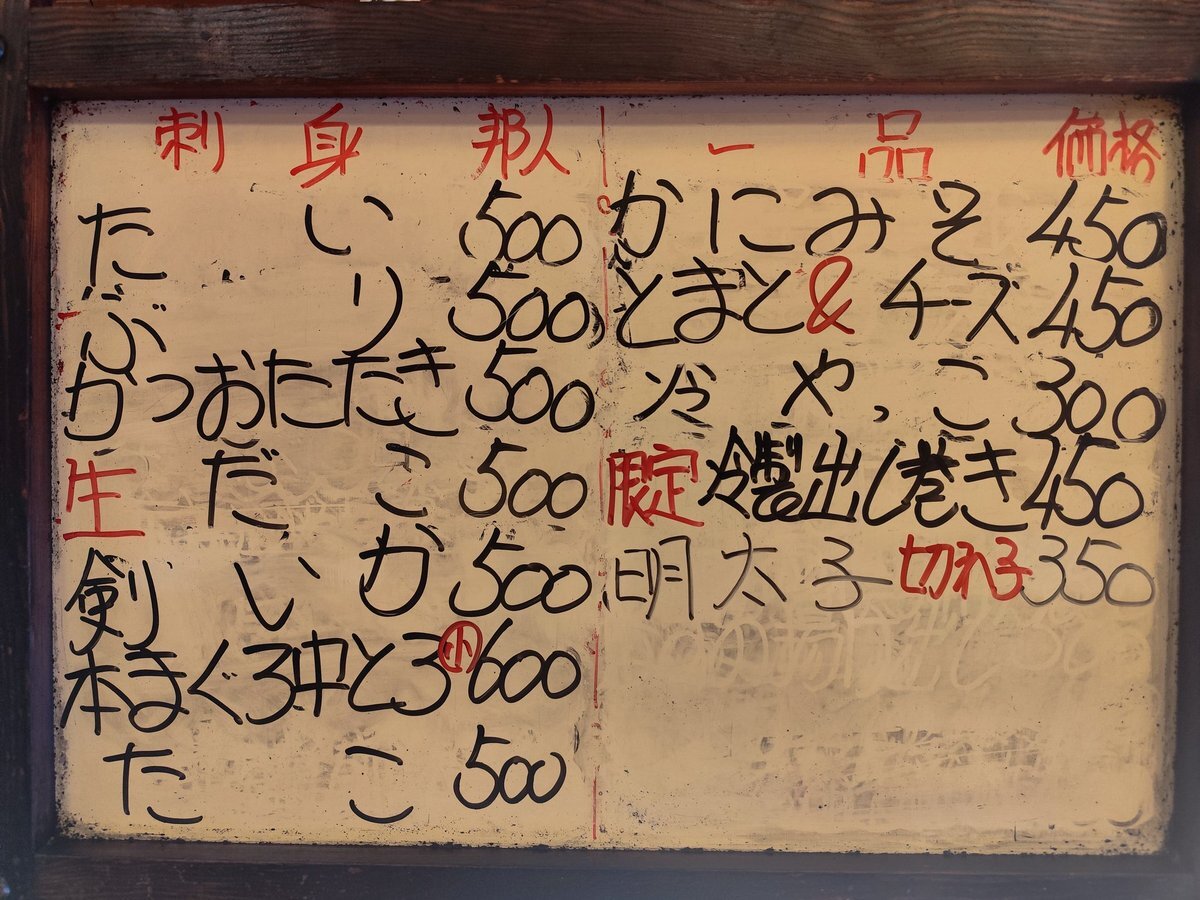 刺身 邦人
たい 500
ぶり 500
かつおたたき 500
生だこ 500
剣いか 500
本まぐろ中とろ ㊙小 600
たこ 500
一品 価格
かにみそ 450
とまと&チーズ 450
冷やっこ 300
限定 冷製出し巻き 450
明太子 切れ子 350